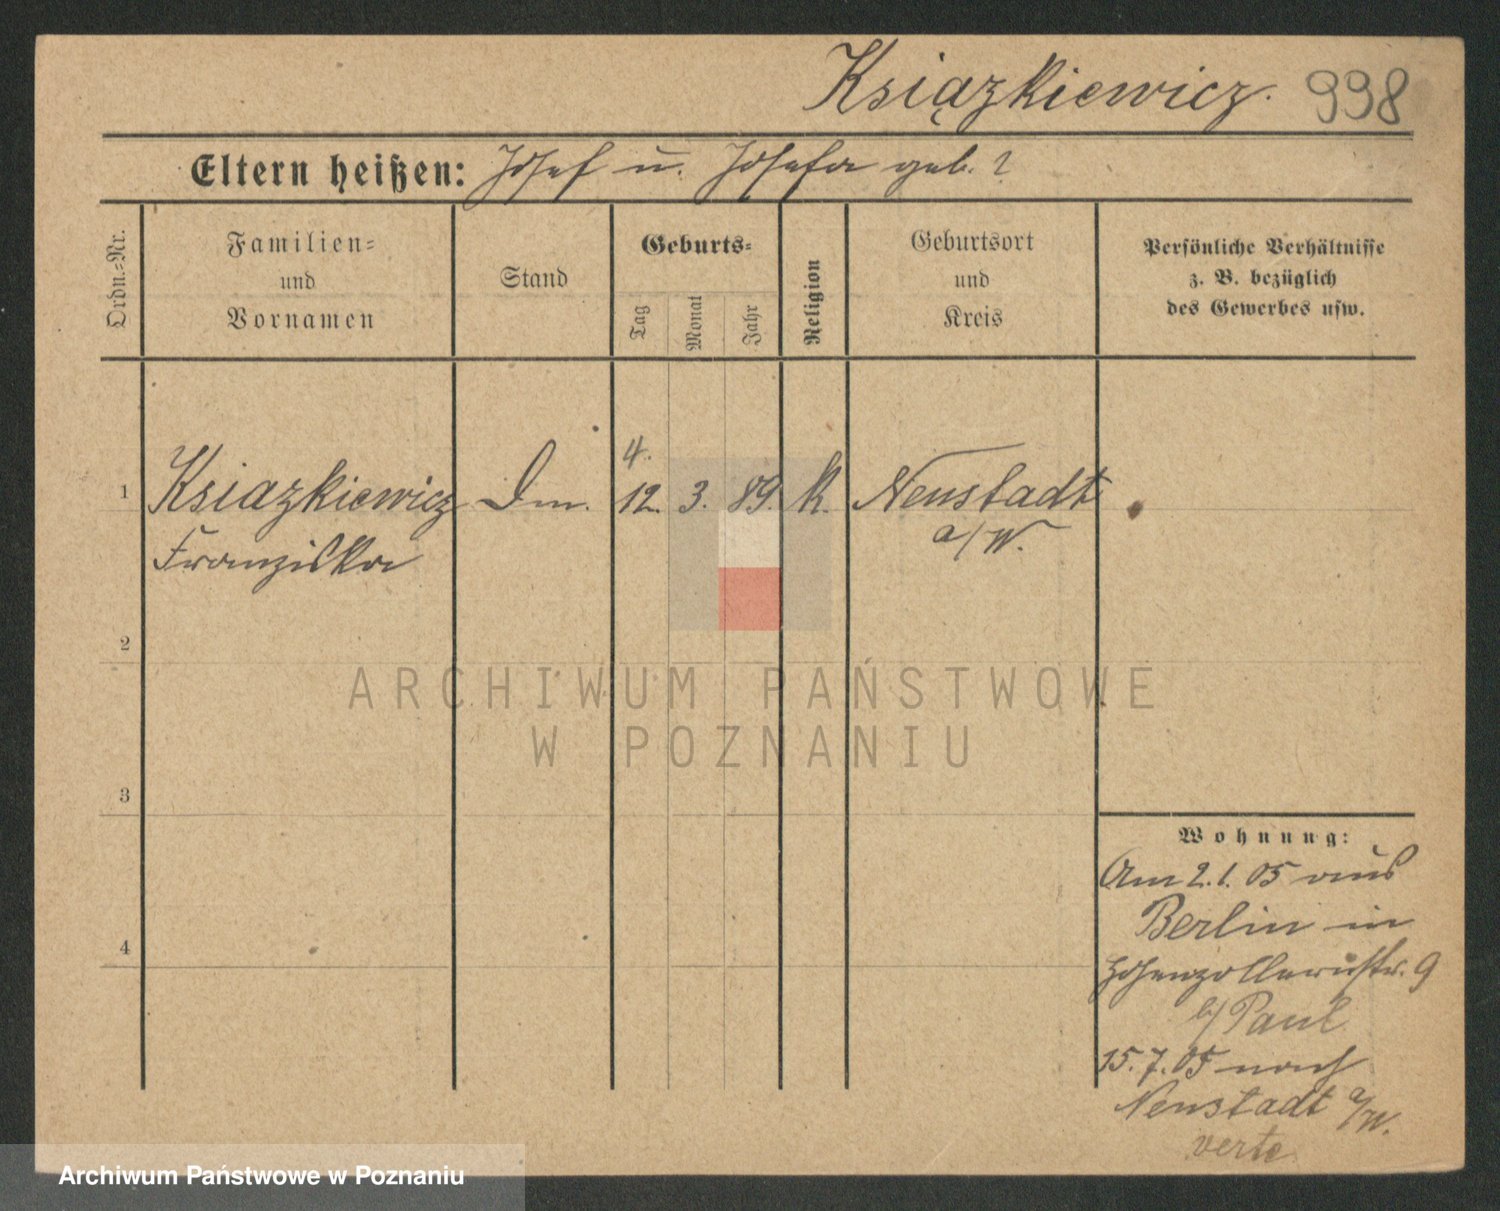 Książkiewicz. 998
Eltern heißen: Josef u. Josefa geb. ?
Ordn.=Nr.
Familien=
und
Vornamen
Stand
Geburts=
Tag
Monat
Jahr
Religion
Geburtsort
und
Kreis
Persönliche Verhältnisse
z. B. bezüglich
des Gewerbes usw.
4.
1 Ksiazkiewicz Dm. 12. 3. 89. k. Neustadt
Franziska a/W.
2
3
4
Wohnung:
Am 2.1.05 aus
Berlin in
Hohenzollernstr. 9
b/Paul
15.7.05 nach
Neustadt a/W.
verte
ARCHIWUM PAŃSTWOWE
W POZNANIU
Archiwum Państwowe w Poznaniu